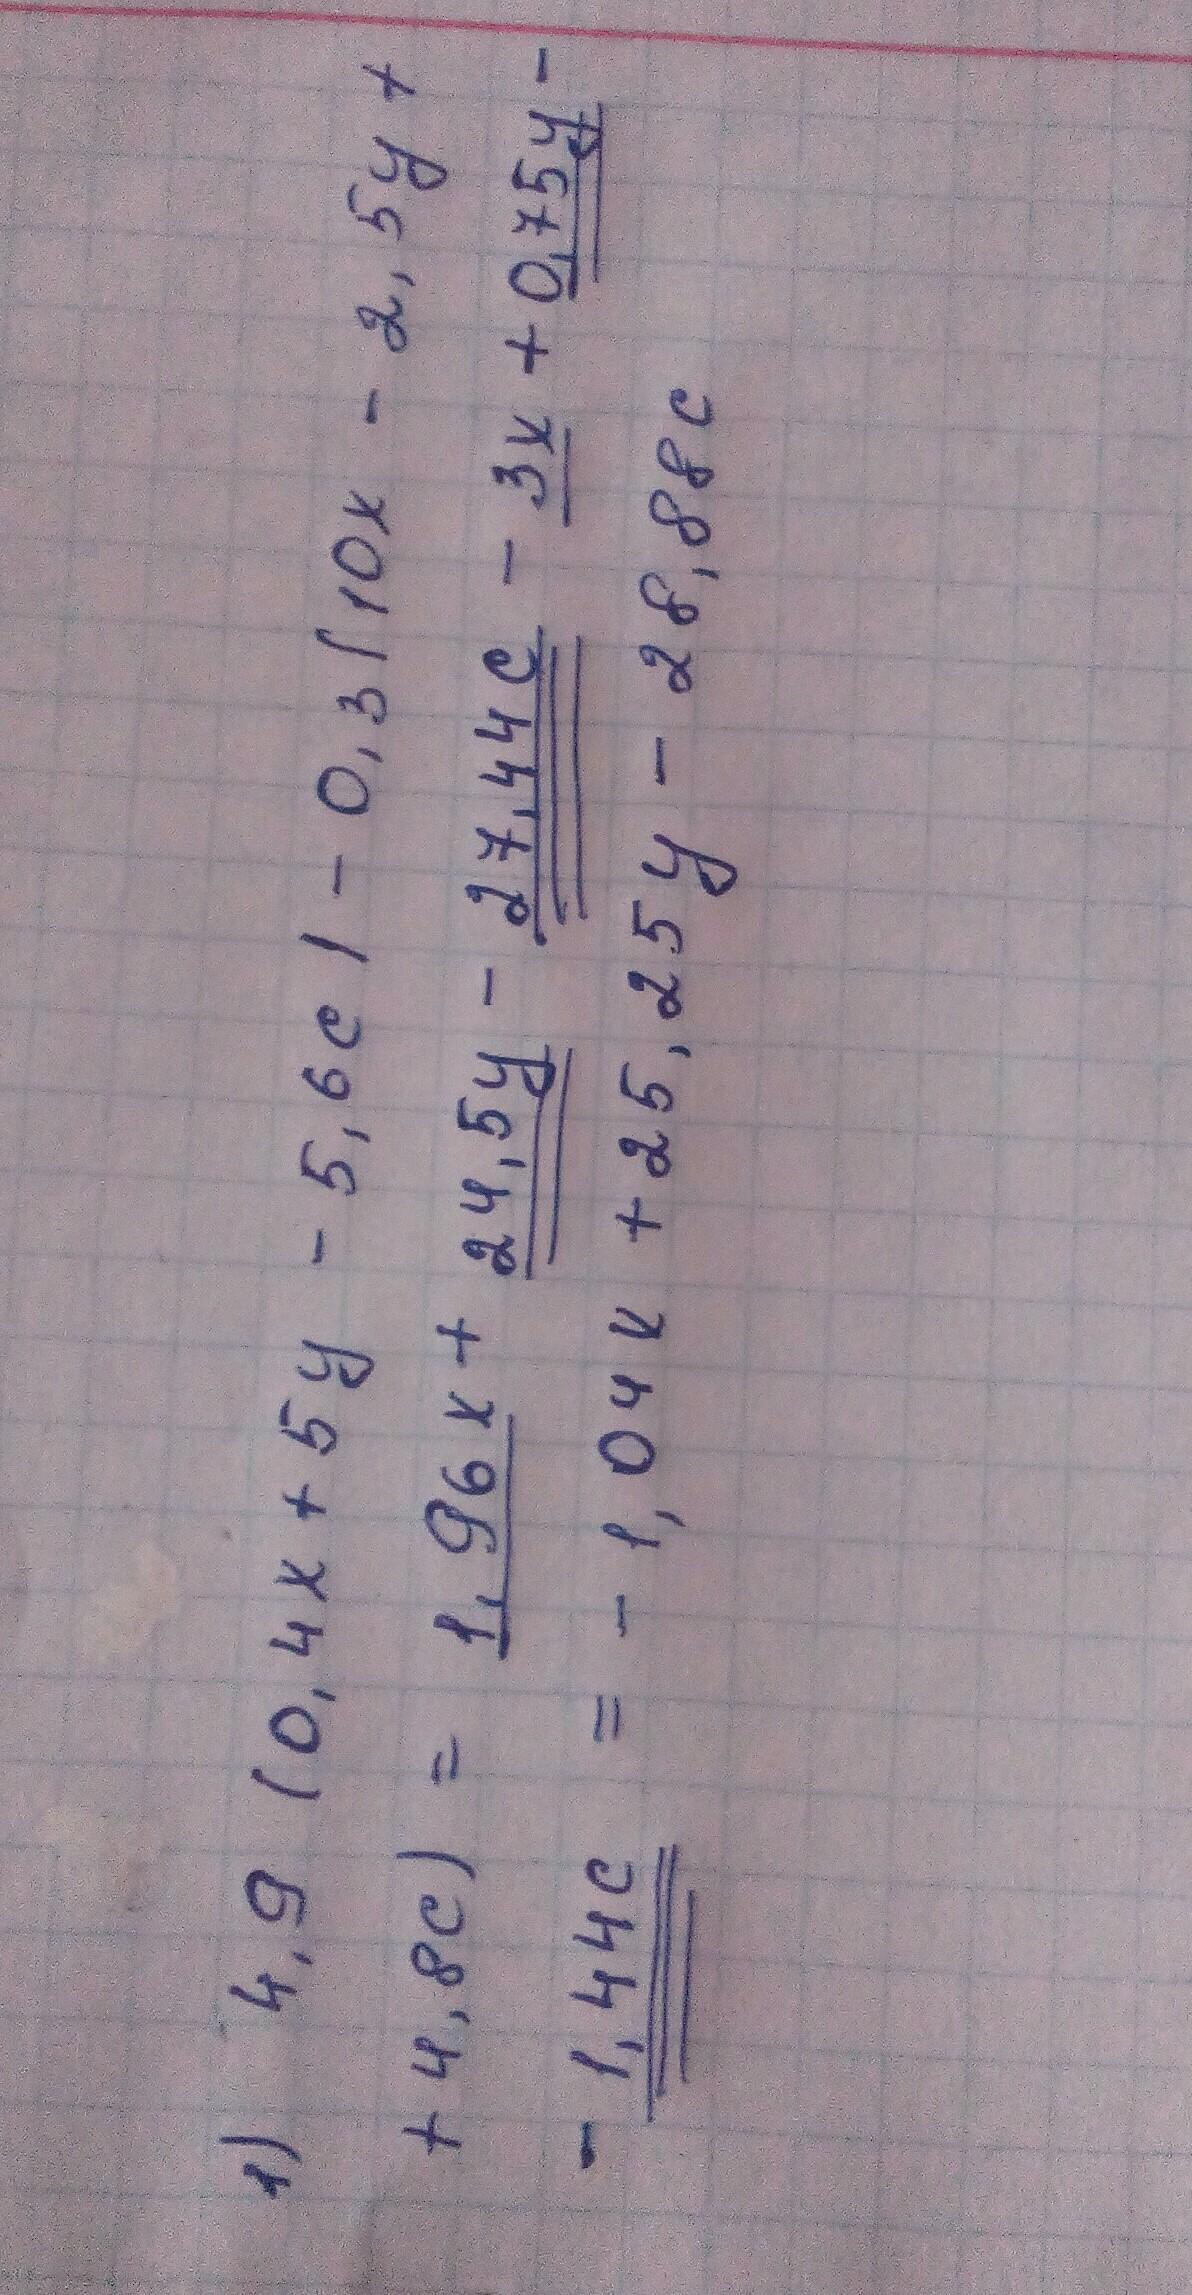 1) 4,9 (0,4x + 5y - 5,6c) - 0,3(10x - 2,5y +
+ 4,8c) = 1,96x + 24,5y - 27,44c - 3x + 0,75y -
- 1,44c = - 1,04x + 25,25y - 28,88c